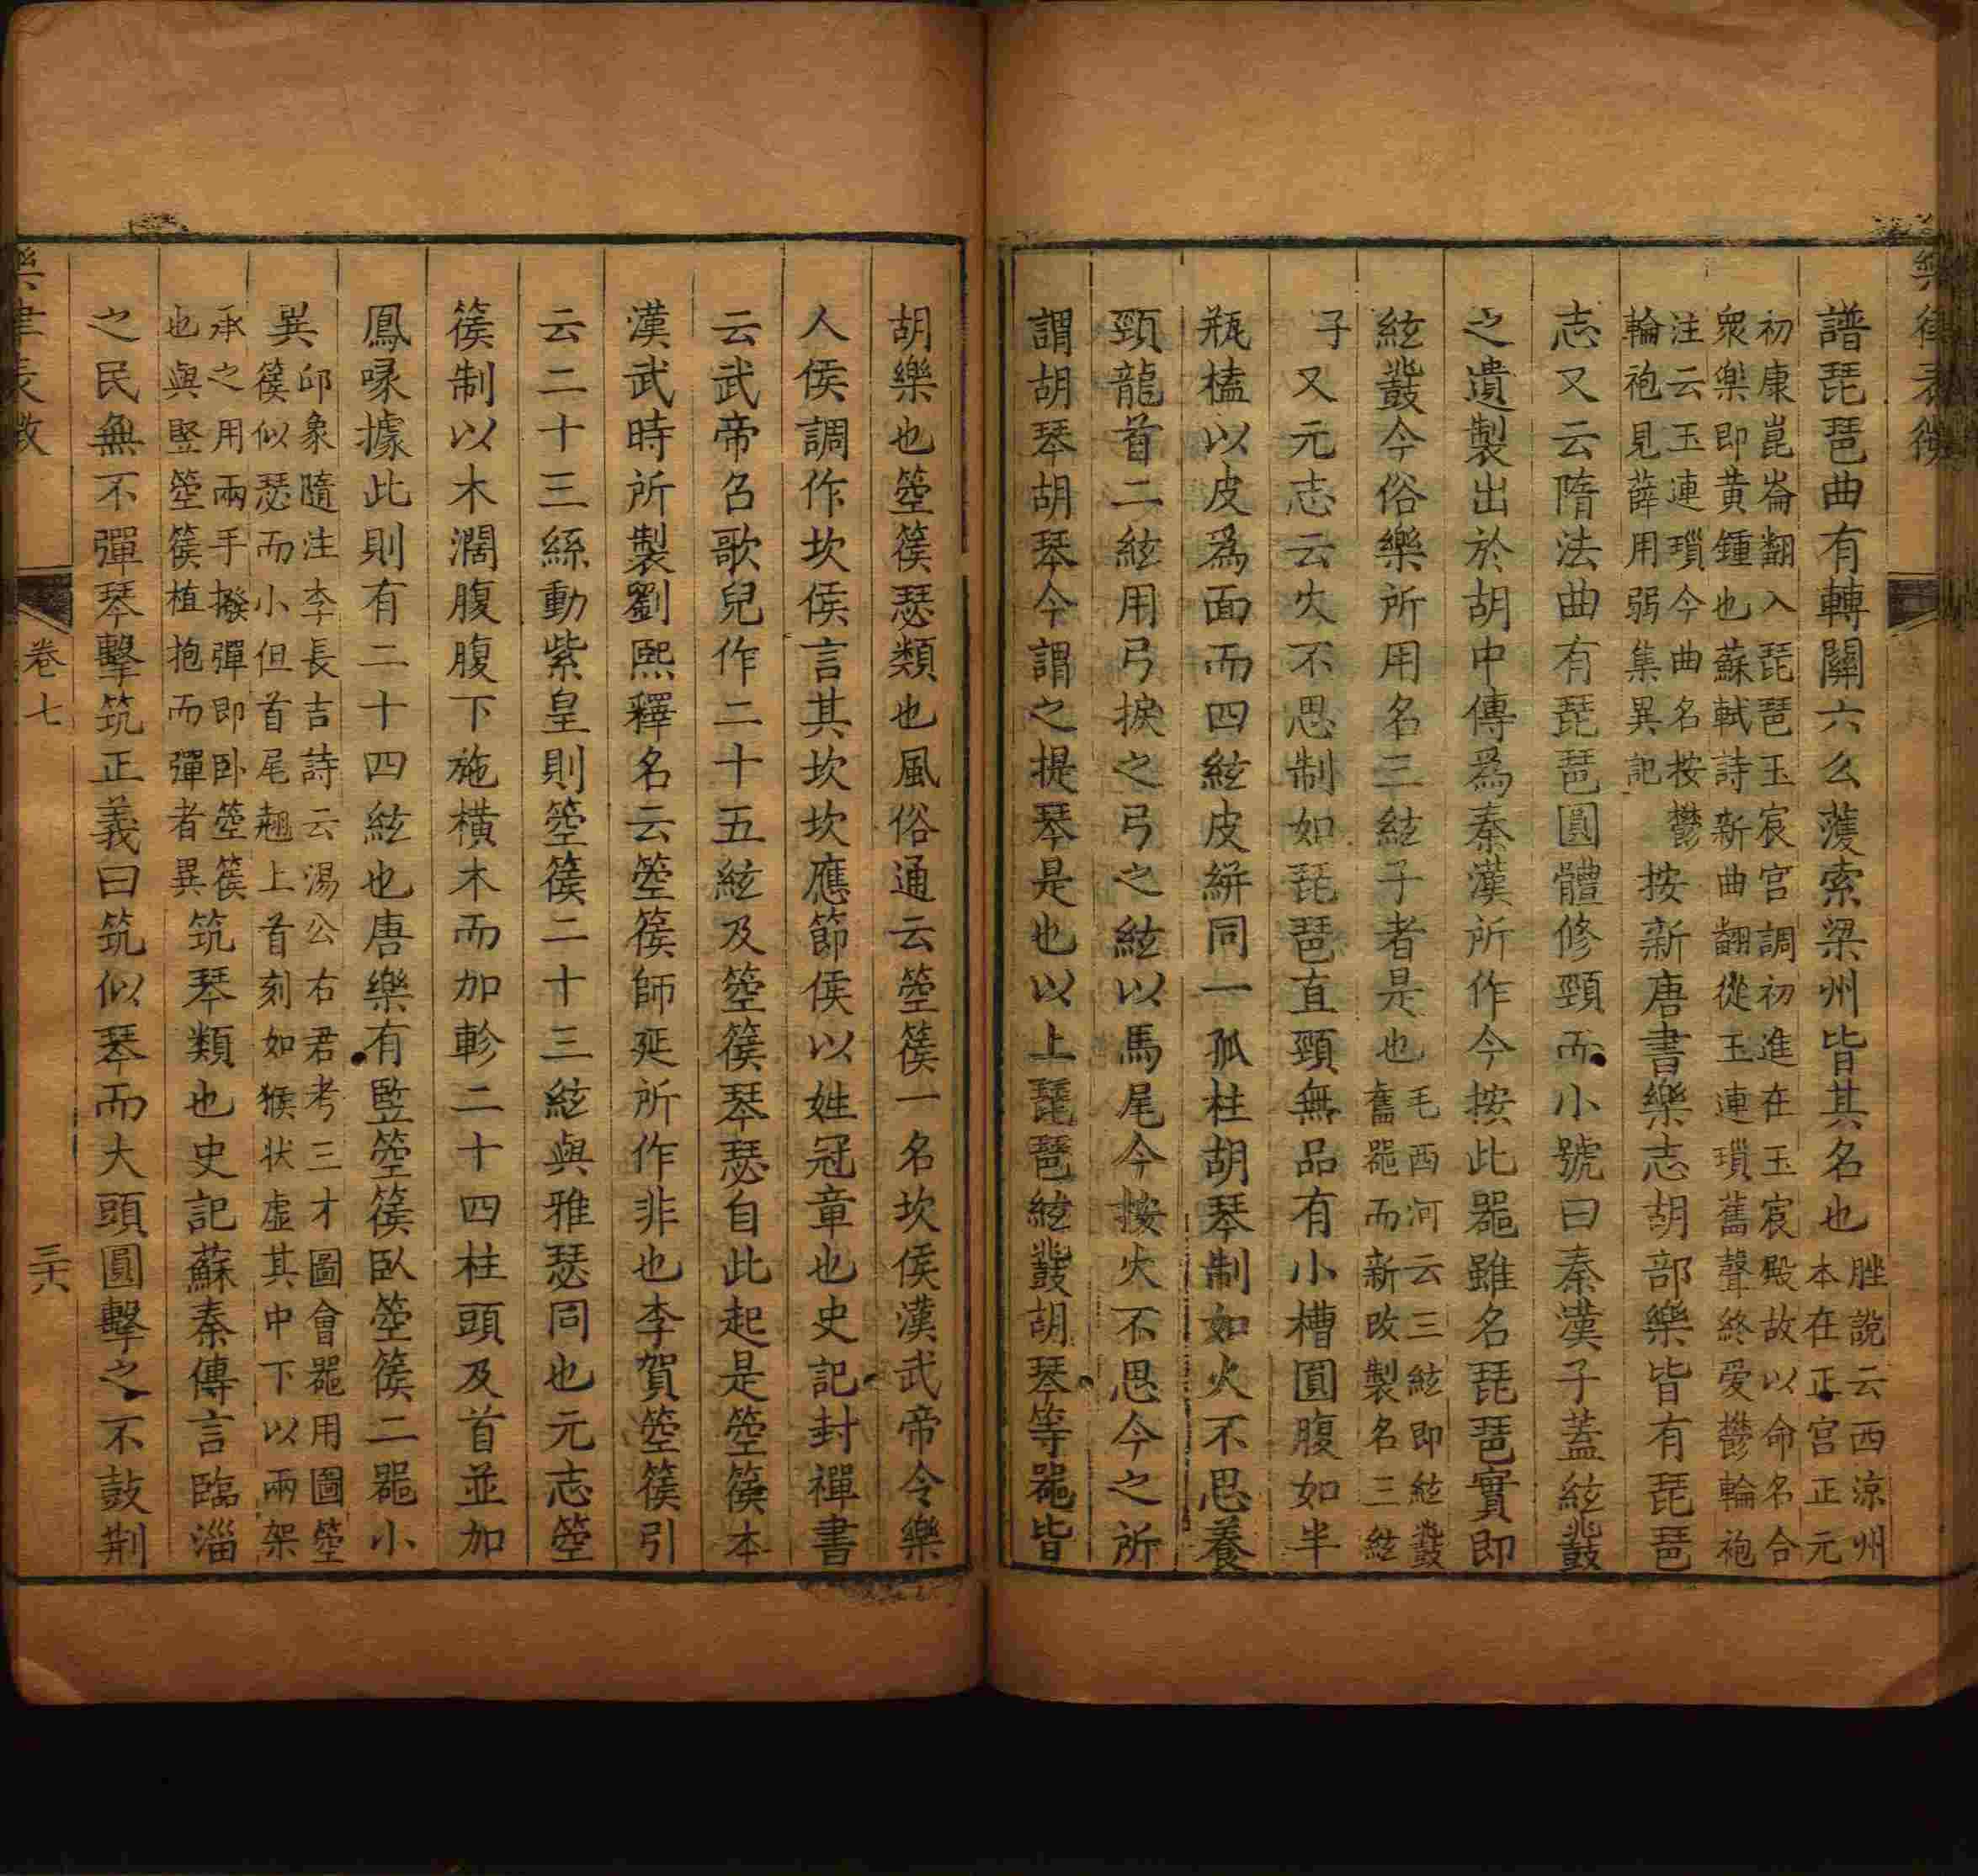 譜琵琶曲有轉關六么濩索梁州皆其名也脞說云西涼州本在正宮正元
初康崑崙翻入琵琶玉宸宮調初進在玉宸殿故以命名合衆樂即黄鍾也蘇軾詩新曲翻從玉連瑣舊聲終爱鬱輪袍
注云玉連瑣今曲名按鬱輪袍見薛用弱集異記按新唐書樂志胡部樂皆有琵琶
志又云隋法曲有琵琶圓體修頸而小號曰秦漢子蓋絃鼗
之遺製出於胡中傳爲秦漢所作今按此噐雖名琵琶實即
絃鼗今俗樂所用名三絃子者是也毛西河云三絃即絃鼗舊噐而新改製名三絃
子又元志云火不思制如琵琶直頸無品有小槽圓腹如半
瓶榼以皮爲面而四絃皮絣同一孤柱胡琴制如火不思養
頸龍首二絃用弓捩之弓之絃以馬尾今按火不思今之所
謂胡琴胡琴今謂之提琴是也以上琵琶絃鼗胡琴等噐皆
胡樂也箜篌瑟類也風俗通云箜篌一名坎侯漢武帝令樂
人侯調作坎侯言其坎坎應節侯以姓冠章也史記封禪書
云武帝召歌兒作二十五絃及箜篌琴瑟自此起是箜篌本
漢武時所製劉熙釋名云箜篌師延所作非也李賀箜篌引
云二十三絲動紫皇則箜篌二十三絃與雅瑟同也元志箜
篌制以木濶腹腹下施横木而加軫二十四柱頭及首並加
鳳喙據此則有二十四絃也唐樂有竪箜篌臥箜篌二噐小
異邱象隨注李長吉詩云湯公右君考三才圖會噐用圖箜篌似瑟而小但首尾翹上首刻如猴状虚其中下以兩架
承之用兩手撥彈即卧箜篌也與竪箜篌植抱而彈者異筑琴類也史記蘇秦傳言臨淄
之民無不彈琴擊筑正義曰筑似琴而大頭圓擊之不鼓荆
卷七
三十六